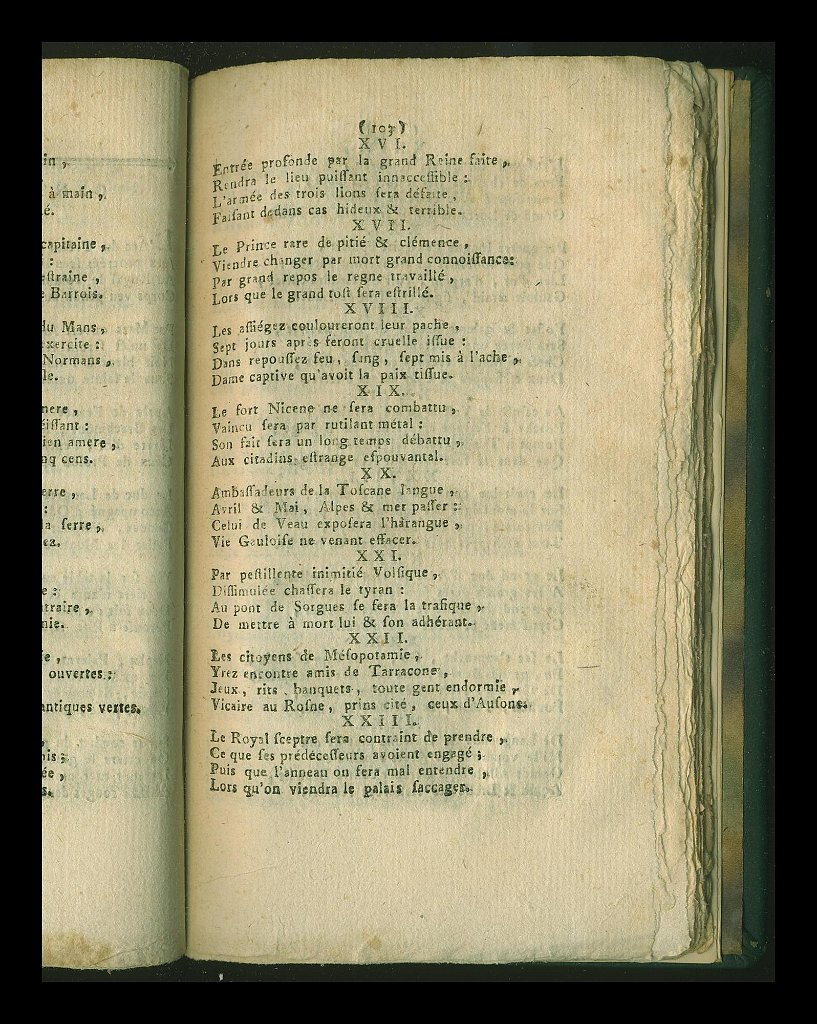 in,
à main,
é.
capitaine,
:
estraine,
e Barrois.
du Mans,
exercite :
Normans,
le.
nere,
éissant :
ien amere,
nq cens.
erre,
:
la serre,
ez.
e :
traire,
nie.
e,
ouvertes :
antiques vertes.
,
ois ;
ée,
s.
(107)
XVI.
Entrée profonde par la grand Reine faite,
Rendra le lieu puiſſant innacceſſible :
L'armée des trois lions ſera défaite,
Faiſant dedans cas hideux & terrible.
XVII.
Le Prince rare de pitié & clémence,
Viendre changer par mort grand connoiſſance:
Par grand repos le regne travaillé,
Lors que le grand toſt ſera eſtrillé.
XVIII.
Les aſſiégez couloureront leur pache,
Sept jours après feront cruelle iſſue :
Dans repouſſez feu, ſang, ſept mis à l'ache,
Dame captive qu'avoit la paix tiſſue.
XIX.
Le fort Nicene ne ſera combattu,
Vaincu ſera par rutilant métal :
Son fait ſera un long temps débattu,
Aux citadins eſtrange eſpouvantal.
XX.
Ambaſſadeurs de la Toſcane langue,
Avril & Mai, Alpes & mer paſſer :
Celui de Veau expoſera l'harangue,
Vie Gauloiſe ne venant effacer.
XXI.
Par peſtillente inimitié Volſique,
Diſſimulée chaſſera le tyran :
Au pont de Sorgues ſe fera la trafique,
De mettre à mort lui & ſon adhérant.
XXII.
Les citoyens de Méſopotamie,
Yrez encontre amis de Tarracone,
Jeux, rits, banquets, toute gent endormie,
Vicaire au Roſne, prins cité, ceux d'Auſone.
XXIII.
Le Royal ſceptre ſera contraint de prendre,
Ce que ſes prédéceſſeurs avoient engagé ;
Puis que l'anneau on fera mal entendre,
Lors qu'on viendra le palais ſaccager.